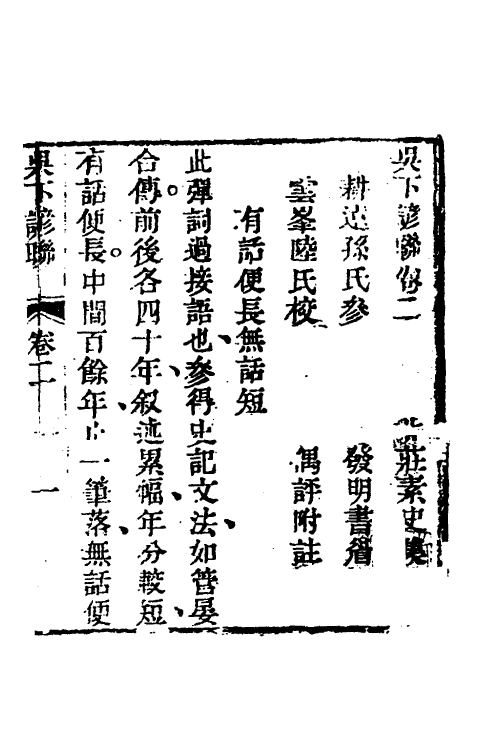 吳下諺聯卷二
北莊素史
耕遠孫氏參 發明書屋
雲峯陸氏校 偶評附註
有話便長無話短
此彈詞過接語也參得史記文法如管晏
合傳前後各四十年叙述累幅年分較短
有話便長中間百餘年止一筆落無話便
吳下諺聯 卷二 一